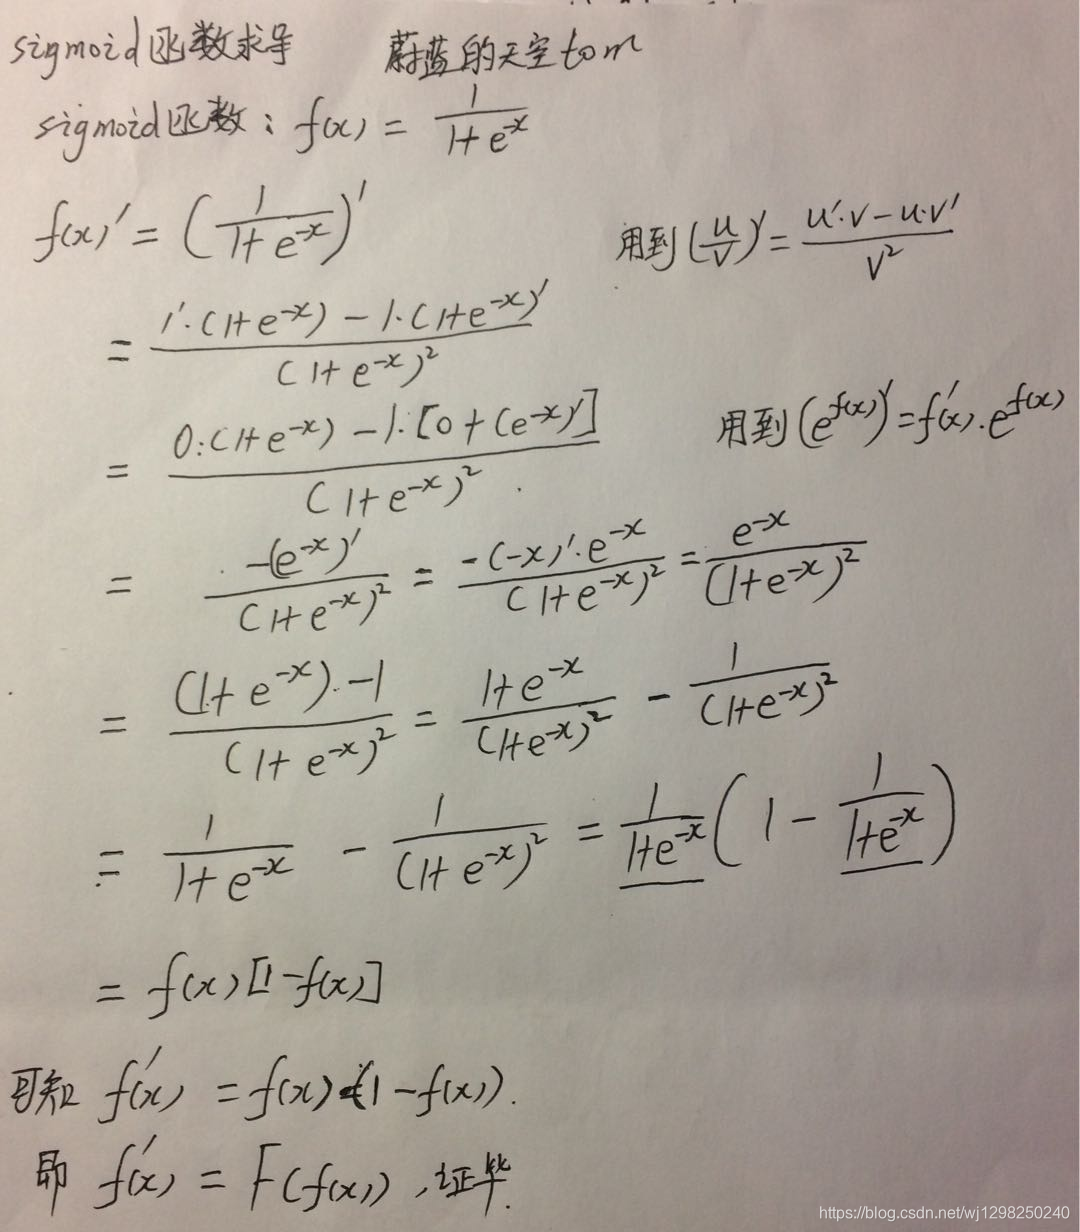 sigmoid函数求导 蔚蓝的天空tom
sigmoid函数：f(x) = 1/(1+e^{-x})
f(x)′ = (1/(1+e^{-x}))′ 用到(u/v)′ = (u′·v−u·v′)/v²
= (1′·(1+e^{-x}) − 1·(1+e^{-x})′)/(1+e^{-x})²
= (0·(1+e^{-x}) − 1·[0+(e^{-x})′])/(1+e^{-x})² 用到(e^{f(x)})′ = f′(x)·e^{f(x)}
= −(e^{-x})′/(1+e^{-x})² = −(−x)′·e^{-x}/(1+e^{-x})² = e^{-x}/(1+e^{-x})²
= ((1+e^{-x})−1)/(1+e^{-x})² = (1+e^{-x})/(1+e^{-x})² − 1/(1+e^{-x})²
= 1/(1+e^{-x}) − 1/(1+e^{-x})² = 1/(1+e^{-x}) (1 − 1/(1+e^{-x}))
= f(x)[1−f(x)]
可知 f′(x) = f(x)(1−f(x)).
即 f′(x) = F(f(x)),证毕.
https://blog.csdn.net/wj1298250240